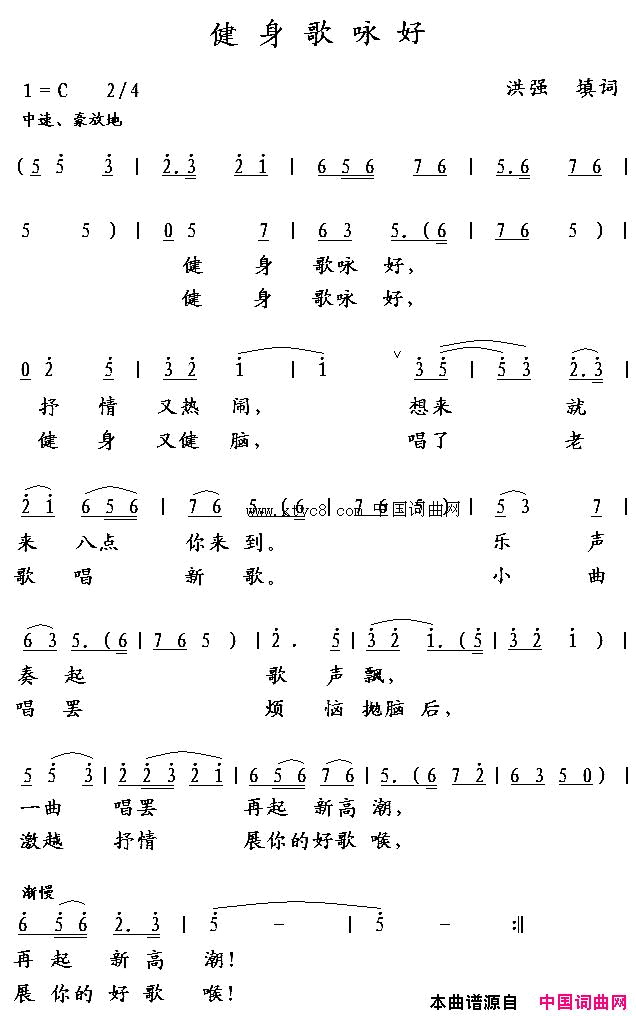 健身歌咏好
1=C 2/4 洪强 填词
中速、豪放地
(5 5 3 | 2. 3 2 1 | 6 5 6 7 6 | 5. 6 7 6 |
5 5 ) | 0 5 7 | 6 3 5. (6 | 7 6 5 ) |
健 身 歌咏 好，
健 身 歌咏 好，
0 2 5 | 3 2 1 | 1 ∨ 3 5 | 5 3 2. 3 |
抒 情 又热 闹， 想来 就
健 身 又健 脑， 唱了 老
2 1 6 5 6 | 7 6 5. (6 | 7 6 5 ) | 5 3 7 |
www.ktvc8.com 中国词曲网
来 八点 你来 到。 乐 声
歌 唱 新 歌。 小 曲
6 3 5. (6 | 7 6 5 ) | 2. 5 | 3 2 1. (5 | 3 2 1 ) |
奏 起 歌 声 飘，
唱 罢 烦 恼 抛脑 后，
5 5 3 | 2 2 3 2 1 | 6 5 6 7 6 | 5. (6 7 2 | 6 3 5 0 ) |
一曲 唱罢 再起 新高 潮，
激越 抒情 展你的好歌 喉，
渐慢
6 5 6 2. 3 | 5 – | 5 – :||
再 起 新 高 潮！
展 你的 好 歌 喉！
本曲谱源自 中国词曲网